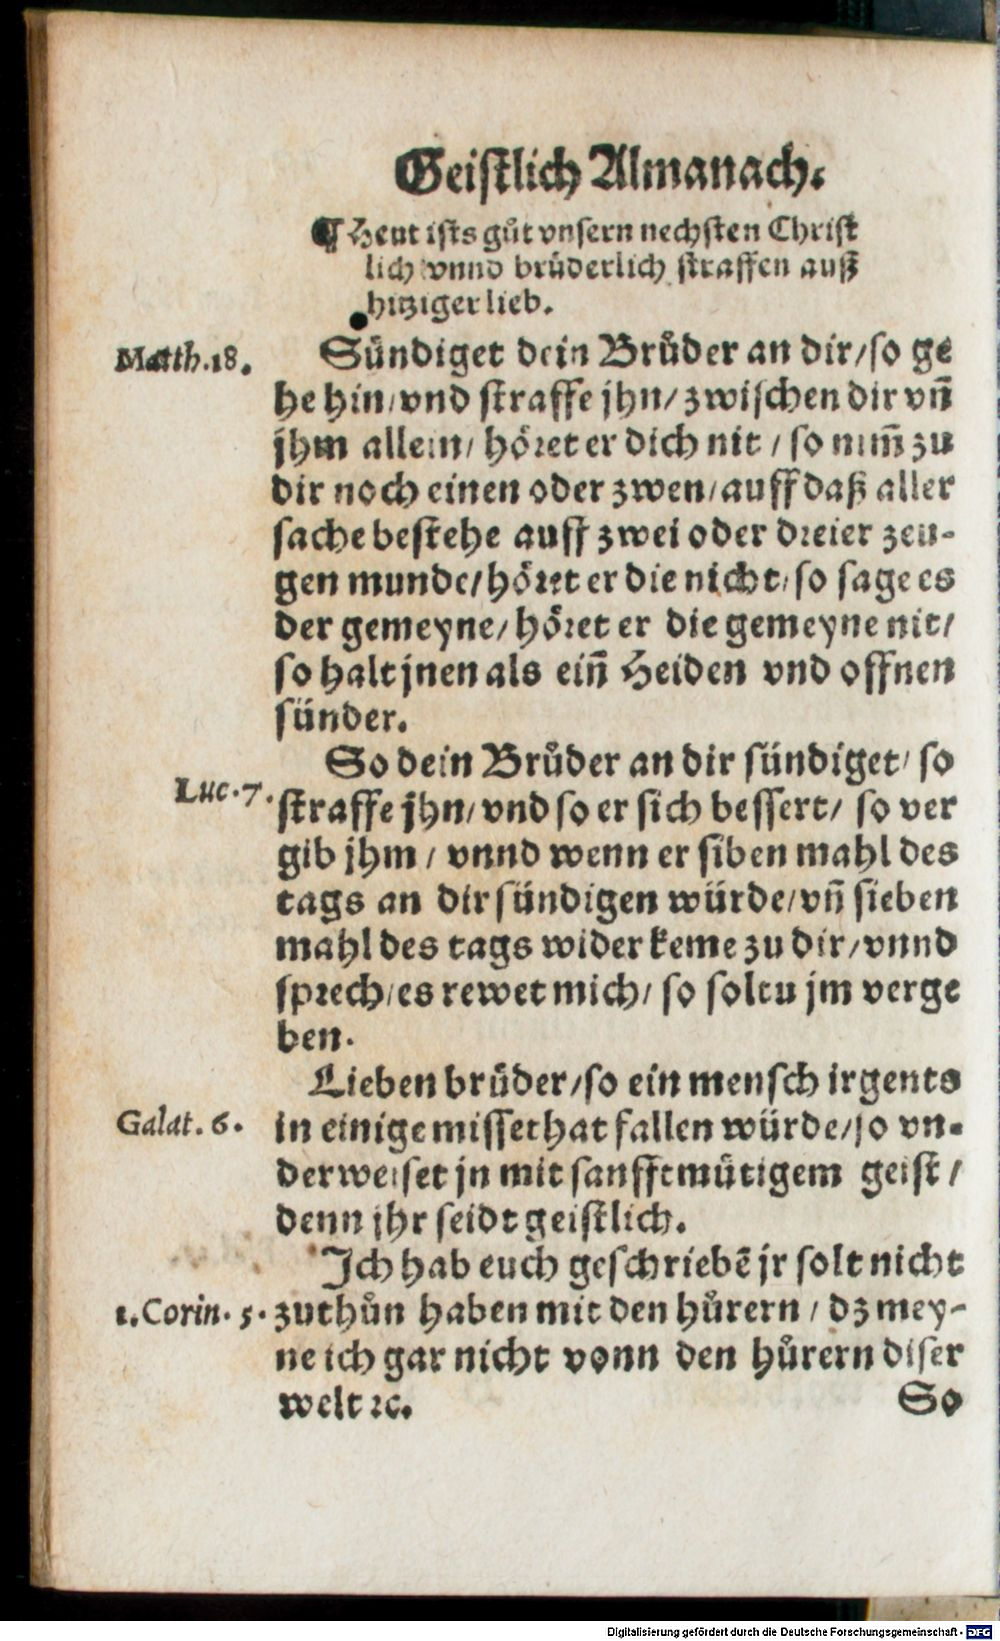 Geistlich Almanach.
¶ Heut ists gůt vnsern nechsten Christ
lich vnnd brůderlich straffen auß
hitziger lieb.
Matth.18. Sündiget dein Brůder an dir/so ge
he hin/vnd straffe jhn/zwischen dir vñ
jhm allein/ höret er dich nit / so nim̃ zu
dir noch einen oder zwen/auff daß aller
sache bestehe auff zwei oder dreier zeu-
gen munde/höret er die nicht/so sage es
der gemeyne/höret er die gemeyne nit/
so halt jnen als eiñ Heiden vnd offnen
sünder.
So dein Brůder an dir sündiget/ so
Luc.7. straffe jhn/vnd so er sich bessert/ so ver
gib jhm / vnnd wenn er siben mahl des
tags an dir sündigen würde/vñ sieben
mahl des tags wider keme zu dir/vnnd
sprech/es rewet mich/ so soltu jm verge
ben.
Lieben brüder/so ein mensch irgents
Galat.6. in einige missethat fallen würde/so vn-
derweiset jn mit sanfftmütigem geist /
denn jhr seidt geistlich.
Ich hab euch geschriebē jr solt nicht
1.Corin.5. zuthůn haben mit den hůrern / dz mey-
ne ich gar nicht vonn den hůrern diser
welt ꝛc. So
Digitalisierung gefördert durch die Deutsche Forschungsgemeinschaft - DFG